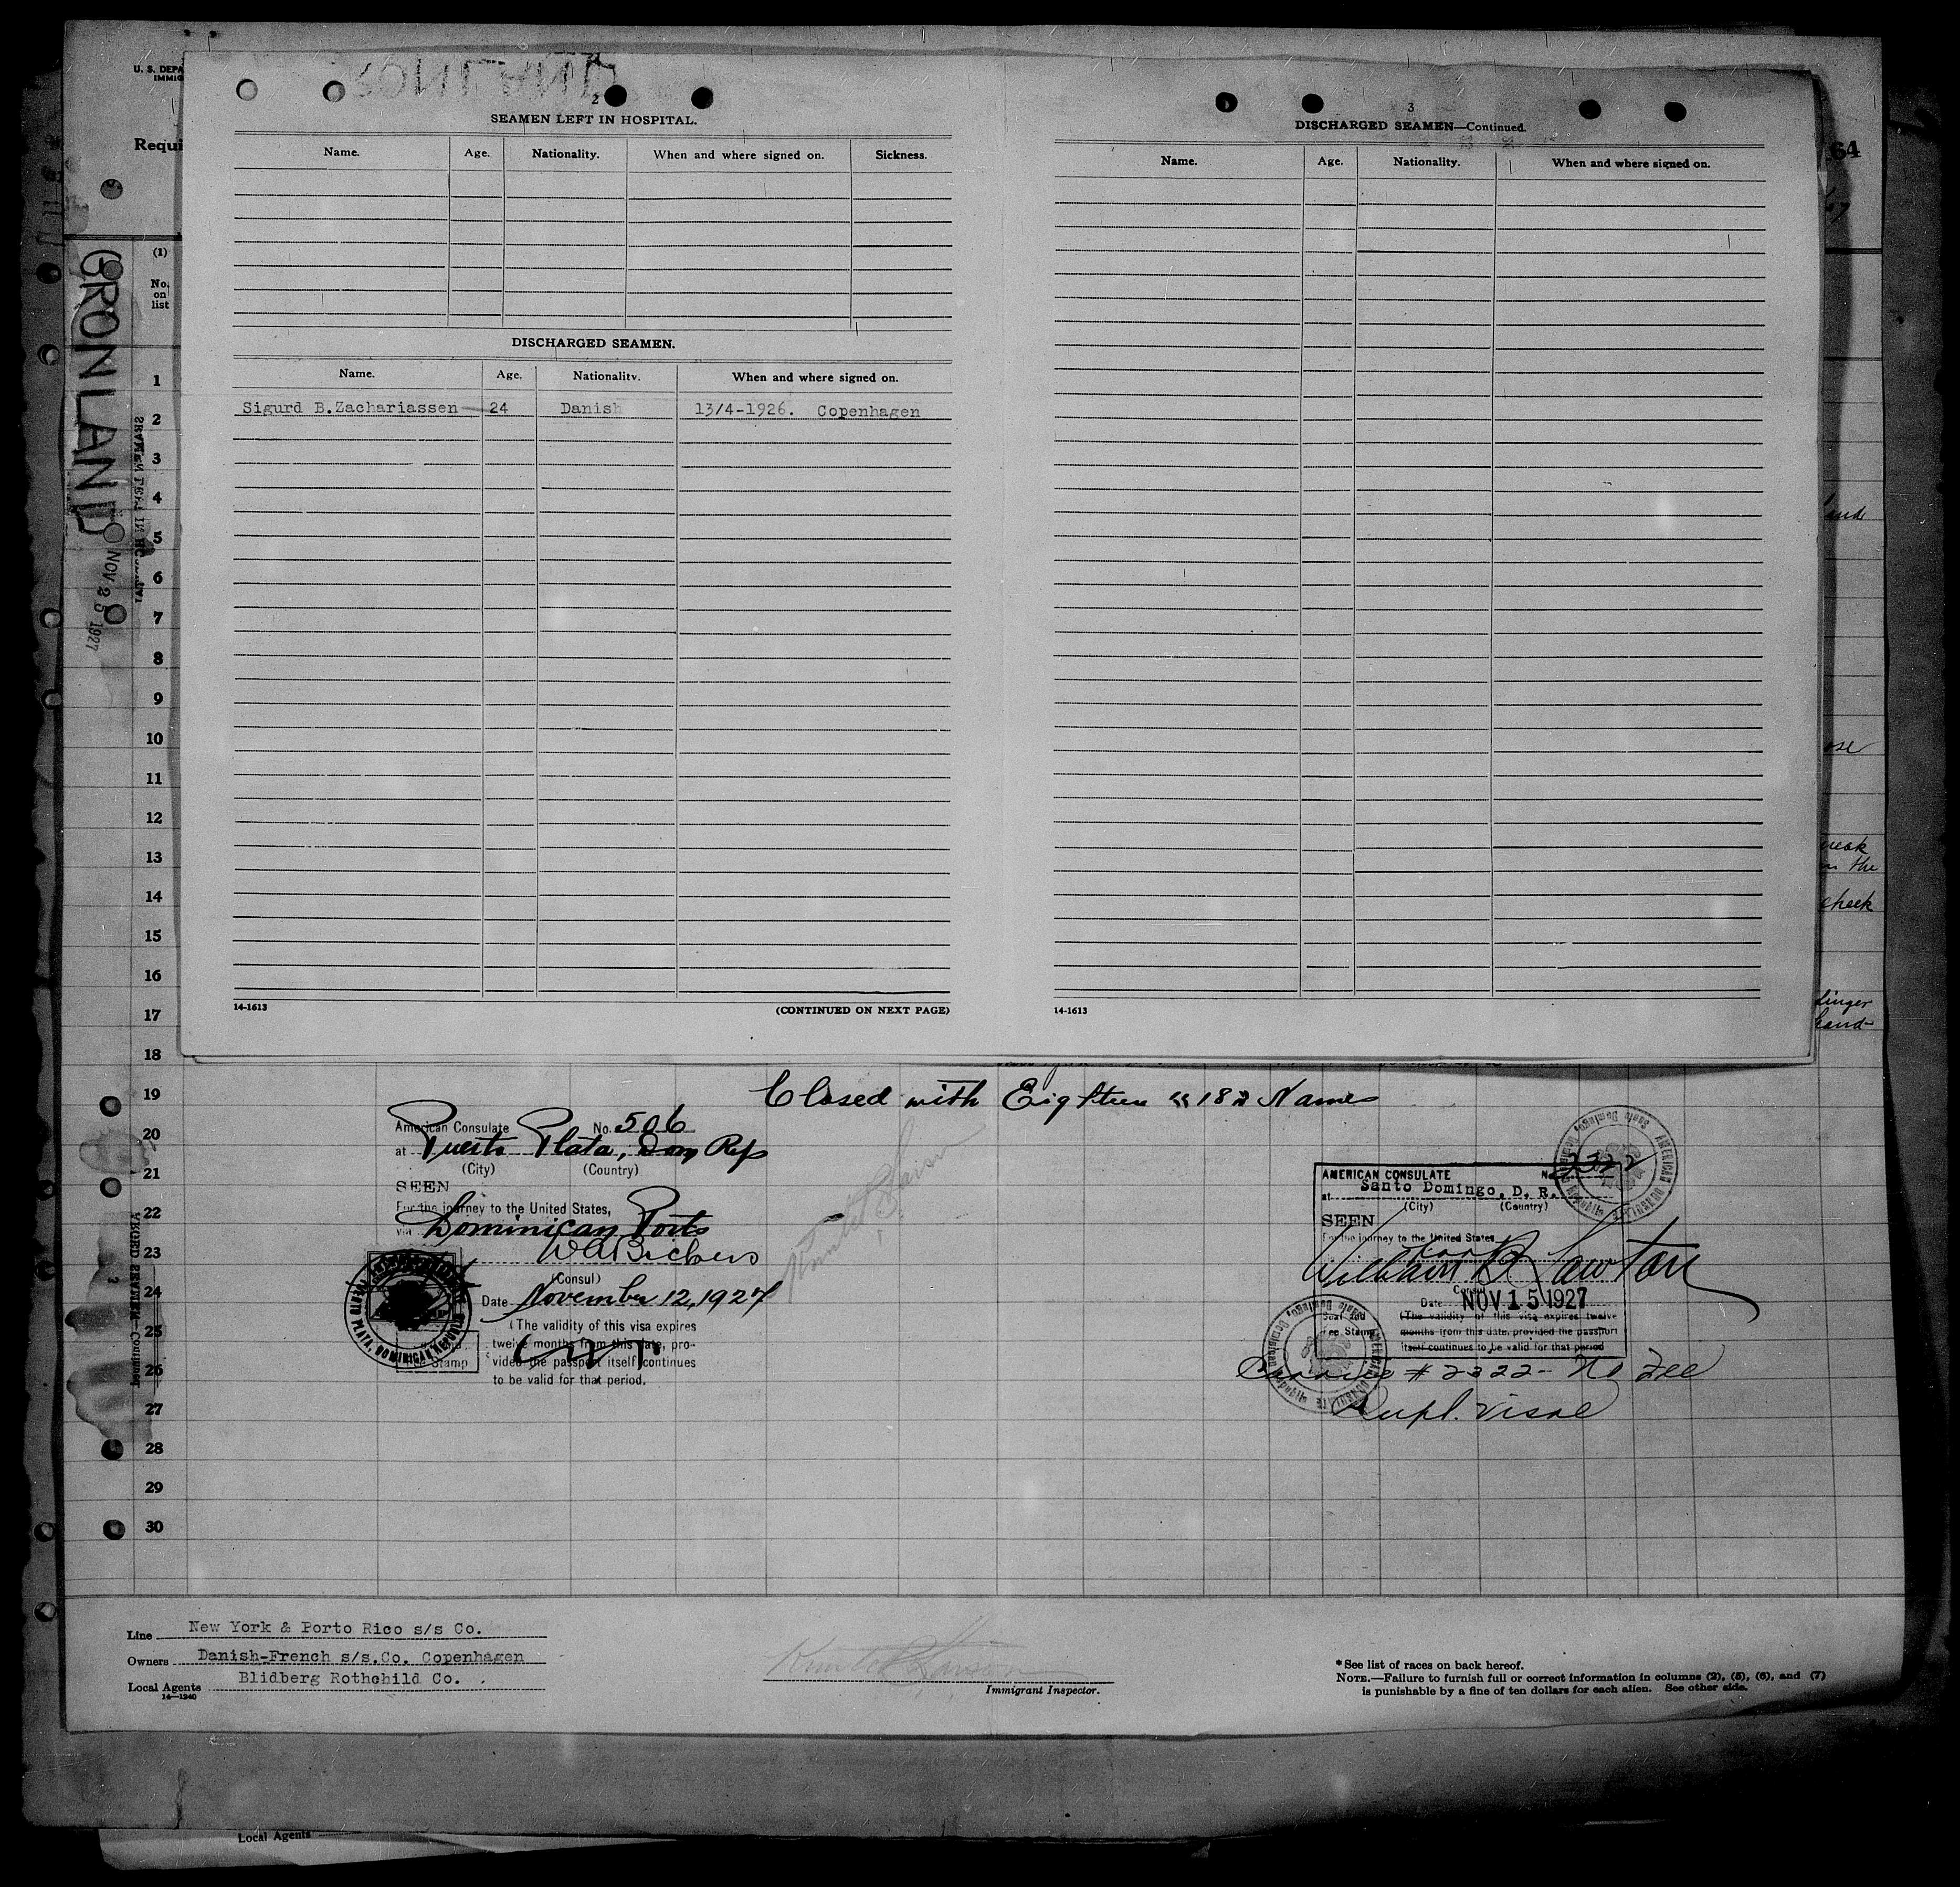 U. S. DEPA
IMMIG
Requi
64
2
SEAMEN LEFT IN HOSPITAL.
Name. Age. Nationality. When and where signed on. Sickness.
DISCHARGED SEAMEN.
Name. Age. Nationality. When and where signed on.
Sigurd B.Zachariassen 24 Danish 13/4-1926. Copenhagen
14-1613 (CONTINUED ON NEXT PAGE)
3
DISCHARGED SEAMEN—Continued.
Name. Age. Nationality. When and where signed on.
14-1613
GRONLAND
NOV 25 1927
(1)
No.
on
list
1
2
3
4
5
6
7
8
9
10
11
12
13
14
15
16
17
18
19
20
21
22
23
24
25
26
27
28
29
30
and
ose
in the
cheek
finger
hand-
Closed with Eighteen "18" Names
American Consulate No. 506
at Puerto Plata, Dom Rep
(City) (Country)
SEEN
For the journey to the United States,
via Dominican Ports
W A Bickers
(Consul)
Date November 12, 1927
(The validity of this visa expires
twelve months from this date, pro-
vided the passport itself continues
to be valid for that period.
Stamp
PUERTO PLATA, DOMINICAN REPUBLIC
AMERICAN CONSULATE No. 2322
at Santo Domingo, D. R.
(City) (Country)
SEEN
For the journey to the United States
William B. Lawton
Consul
Date NOV 15 1927
Seal and
Fee Stamp
(The validity of this visa expires twelve
months from this date, provided the passport
itself continues to be valid for that period
AMERICAN CONSULATE Santo Domingo
AMERICAN CONSULATE Santo Domingo
# 2322- No Fee
Supl. visa
Line New York & Porto Rico s/s Co.
Owners Danish-French s/s.Co. Copenhagen
Local Agents Blidberg Rothchild Co.
14—1240
Immigrant Inspector.
* See list of races on back hereof.
NOTE.—Failure to furnish full or correct information in columns (2), (5), (6), and (7)
is punishable by a fine of ten dollars for each alien. See other side.
Local Agents